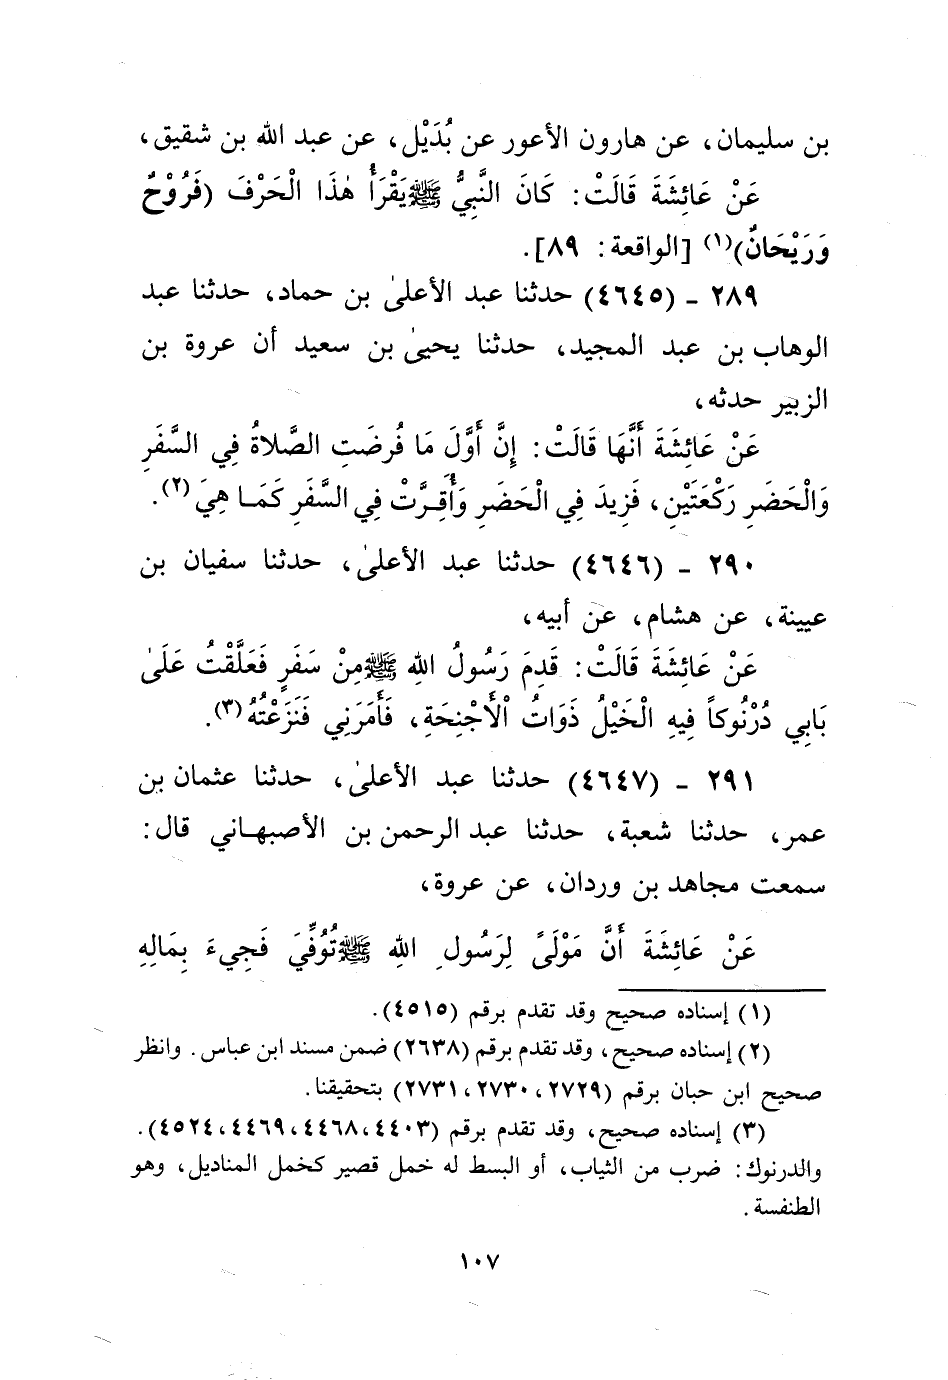 بن سليمان، عن هارون الأعور عن بُدَيْل، عن عبد الله بن شقيق،
عَنْ عَائِشَةَ قَالَتْ: كَانَ النَّبِيُّ ﷺ يَقْرَأُ هٰذَا الْحَرْفَ (فَرُوْحٌ
وَرَيْحَانٌ)(١) [الواقعة: ٨٩].
٢٨٩ ـ (٤٦٤٥) حدثنا عبد الأعلىٰ بن حماد، حدثنا عبد
الوهاب بن عبد المجيد، حدثنا يحيىٰ بن سعيد أن عروة بن
الزبير حدثه،
عَنْ عَائِشَةَ أَنَّهَا قَالَتْ: إِنَّ أَوَّلَ مَا فُرِضَتِ الصَّلاةُ فِي السَّفَرِ
وَالْحَضَرِ رَكْعَتَيْنِ، فَزِيدَ فِي الْحَضَرِ وَأُقِرَّتْ فِي السَّفَرِ كَمَا هِيَ(٢).
٢٩٠ ـ (٤٦٤٦) حدثنا عبد الأعلىٰ، حدثنا سفيان بن
عيينة، عن هشام، عن أبيه،
عَنْ عَائِشَةَ قَالَتْ: قَدِمَ رَسُولُ اللهِ ﷺ مِنْ سَفَرٍ فَعَلَّقْتُ عَلَىٰ
بَابِي دُرْنُوكاً فِيهِ الْخَيْلُ ذَوَاتُ الْأَجْنِحَةِ، فَأَمَرَنِي فَنَزَعْتُهُ(٣).
٢٩١ ـ (٤٦٤٧) حدثنا عبد الأعلىٰ، حدثنا عثمان بن
عمر، حدثنا شعبة، حدثنا عبد الرحمن بن الأصبهاني قال:
سمعت مجاهد بن وردان، عن عروة،
عَنْ عَائِشَةَ أَنَّ مَوْلَىً لِرَسُولِ اللهِ ﷺ تُوُفِّيَ فَجِيءَ بِمَالِهِ
(١) إسناده صحيح وقد تقدم برقم (٤٥١٥).
(٢) إسناده صحيح، وقد تقدم برقم (٢٦٣٨) ضمن مسند ابن عباس. وانظر
صحيح ابن حبان برقم (٢٧٢٩، ٢٧٣٠، ٢٧٣١) بتحقيقنا.
(٣) إسناده صحيح، وقد تقدم برقم (٤٤٠٣، ٤٤٦٨، ٤٤٦٩، ٤٥٢٤).
والدرنوك: ضرب من الثياب، أو البسط له خمل قصير كخمل المناديل، وهو
الطنفسة.
١٠٧